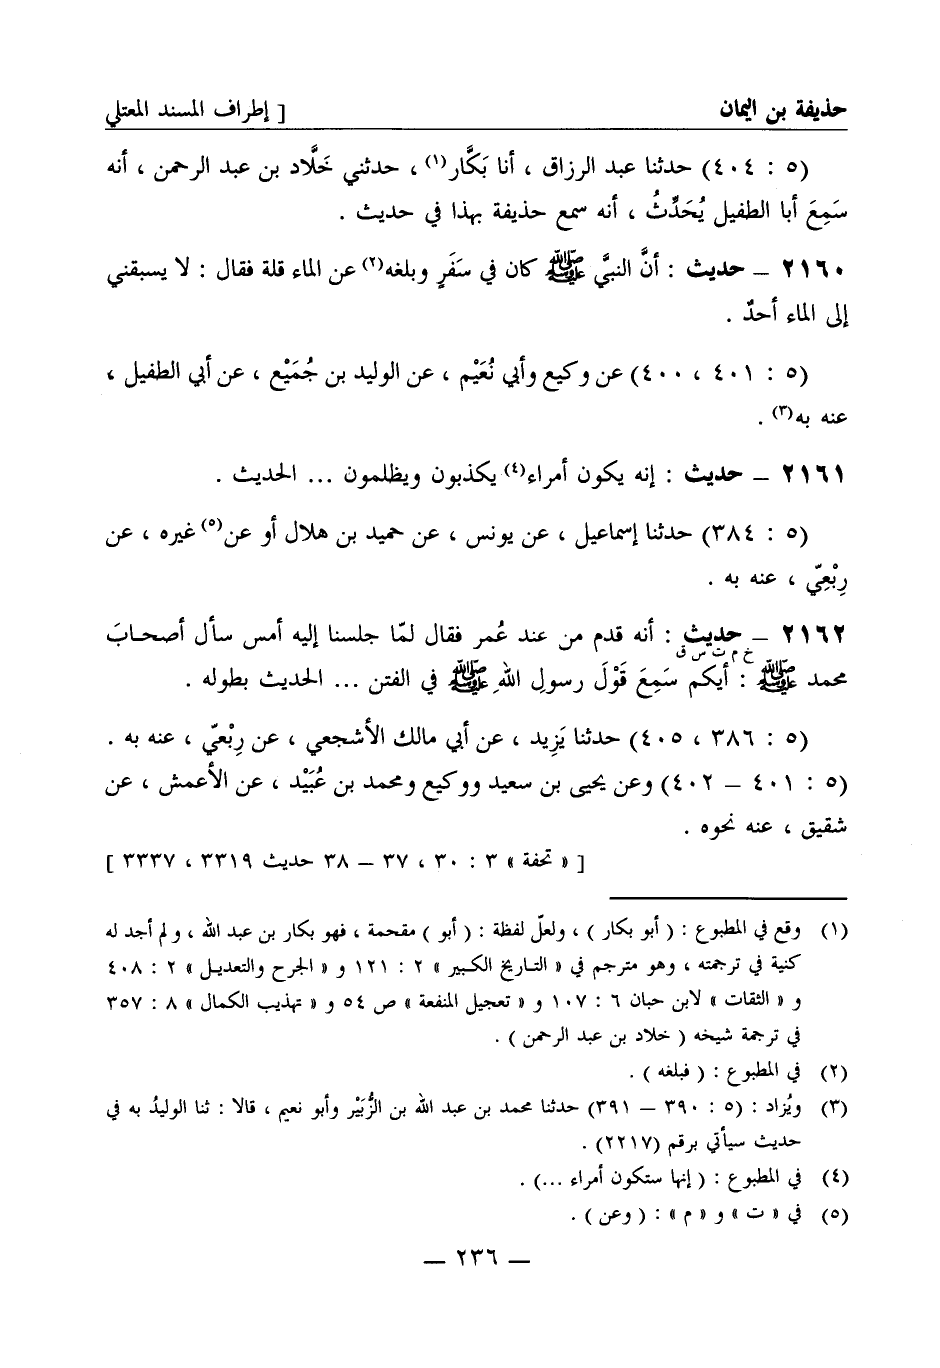 حذيفة بن اليمان [ إطراف المسند المعتلي
(٥ : ٤٠٤) حدثنا عبد الرزاق ، أنا بَكَّار(١) ، حدثني خَلَّاد بن عبد الرحمن ، أنه
سَمِعَ أبا الطفيل يُحَدِّثُ ، أنه سمع حذيفة بهذا في حديث .
٢١٦٠ – حديث : أنَّ النبيَّ ﷺ كان في سَفَرٍ وبلغه(٢) عن الماء قلة فقال : لا يسبقني
إلى الماء أحدٌ .
(٥ : ٤٠١ ، ٤٠٠) عن وكيع وأبي نُعَيْم ، عن الوليد بن جُمَيْع ، عن أبي الطفيل ،
عنه به(٣) .
٢١٦١ – حديث : إنه يكون أمراء(٤) يكذبون ويظلمون ... الحديث .
(٥ : ٣٨٤) حدثنا إسماعيل ، عن يونس ، عن حميد بن هلال أو عن(٥) غيره ، عن
رِبْعِيّ ، عنه به .
٢١٦٢ – حديث : أنه قدم من عند عُمر فقال لمّا جلسنا إليه أمس سأل أصحابَ
خ م ت س ق
محمد ﷺ : أيكم سَمِعَ قَوْلَ رسولِ اللهِ ﷺ في الفتن ... الحديث بطوله .
(٥ : ٣٨٦ ، ٤٠٥) حدثنا يَزِيد ، عن أبي مالك الأشجعي ، عن رِبْعيّ ، عنه به .
(٥ : ٤٠١ – ٤٠٢) وعن يحيى بن سعيد ووكيع ومحمد بن عُبَيْد ، عن الأعمش ، عن
شقيق ، عنه نحوه .
[ « تحفة » ٣ : ٣٠ ، ٣٧ – ٣٨ حديث ٣٣١٩ ، ٣٣٣٧ ]
(١) وقع في المطبوع : ( أبو بكار ) ، ولعلّ لفظة : ( أبو ) مقحمة ، فهو بكار بن عبد الله ، ولم أجد له
كنية في ترجمته ، وهو مترجم في « التاريخ الكبير » ٢ : ١٢١ و « الجرح والتعديل » ٢ : ٤٠٨
و « الثقات » لابن حبان ٦ : ١٠٧ و « تعجيل المنفعة » ص ٥٤ و « تهذيب الكمال » ٨ : ٣٥٧
في ترجمة شيخه ( خلاد بن عبد الرحمن ) .
(٢) في المطبوع : ( فبلغه ) .
(٣) ويُزاد : (٥ : ٣٩٠ – ٣٩١) حدثنا محمد بن عبد الله بن الزُّبَيْر وأبو نعيم ، قالا : ثنا الوليدُ به في
حديث سيأتي برقم (٢٢١٧) .
(٤) في المطبوع : ( إنها ستكون أمراء ...) .
(٥) في « ت » و « م » : ( وعن ) .
– ٢٣٦ –